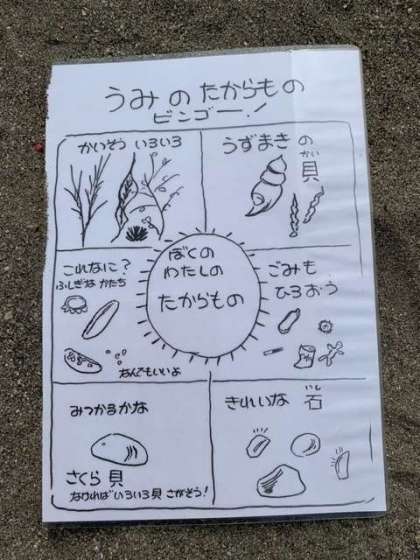 うみ の たからもの
ビンゴー！
かいそう いろいろ
うずまき の
かい
貝
これなに？
ふしぎな かたち
なんでもいいよ
ぼくの
わたしの
たからもの
ごみも
ひろおう
みつかるかな
さくら 貝
なければ いろいろ貝 さがそう！
きれいな 石
いし